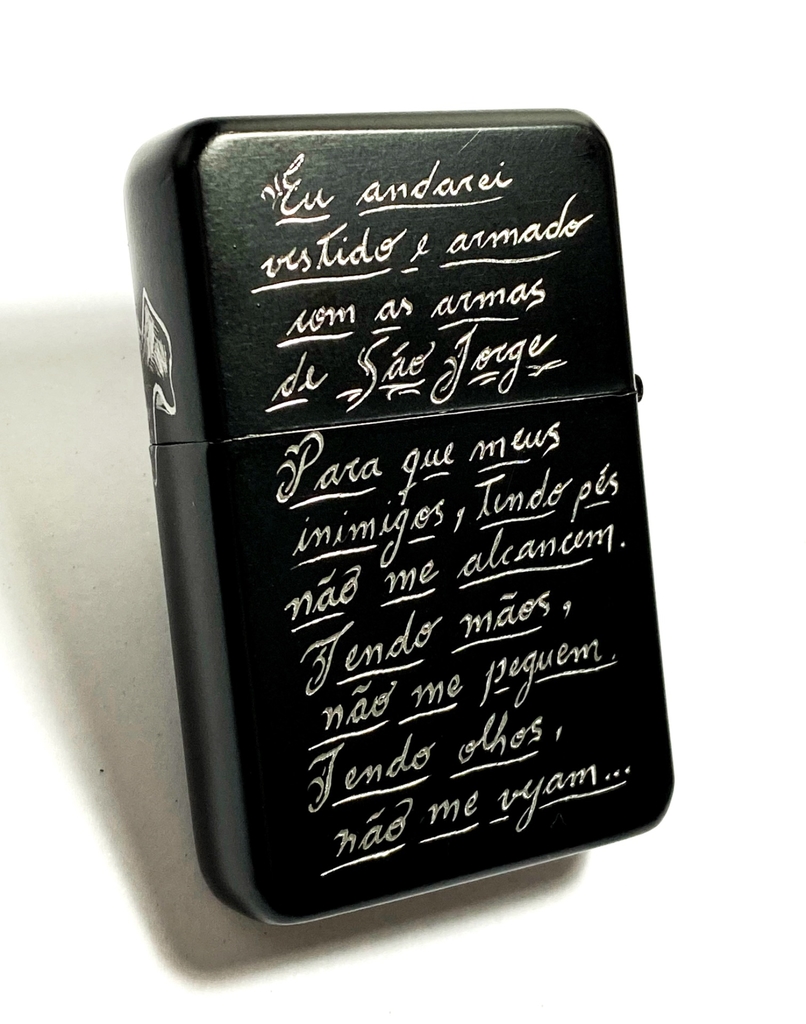 Eu andarei
vestido e armado
com as armas
de São Jorge
Para que meus
inimigos, tendo pés
não me alcancem.
Tendo mãos,
não me peguem.
Tendo olhos,
não me vejam...